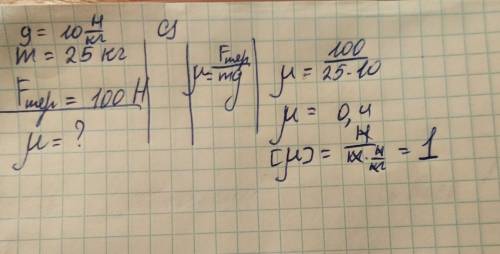 g = 10 Н/кг
m = 25 кг
Fтер = 100 Н
μ = ?
СІ
μ = Fтер/mg
μ = 100/25·10
μ = 0,4
[μ] = Н/кг·Н/кг = 1